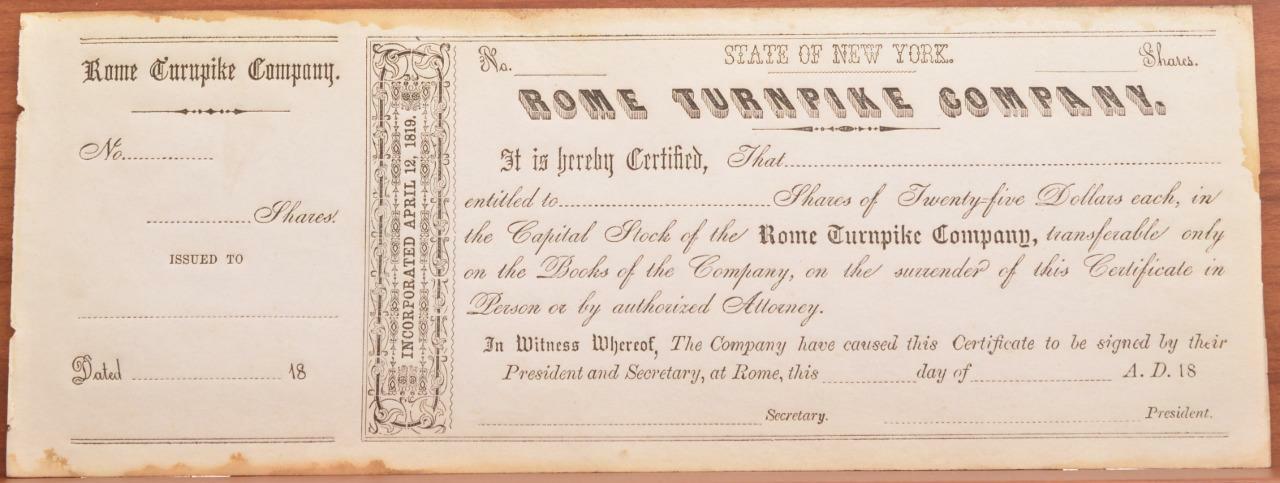 Rome Turnpike Company.
No.
Shares.
ISSUED TO
Dated 18
INCORPORATED APRIL 12, 1819.
No. STATE OF NEW YORK. Shares.
ROME TURNPIKE COMPANY.
It is hereby Certified, That
entitled to Shares of Twenty-five Dollars each, in
the Capital Stock of the Rome Turnpike Company, transferable only
on the Books of the Company, on the surrender of this Certificate in
Person or by authorized Attorney.
In Witness Whereof, The Company have caused this Certificate to be signed by their
President and Secretary, at Rome, this day of A. D. 18
Secretary. President.